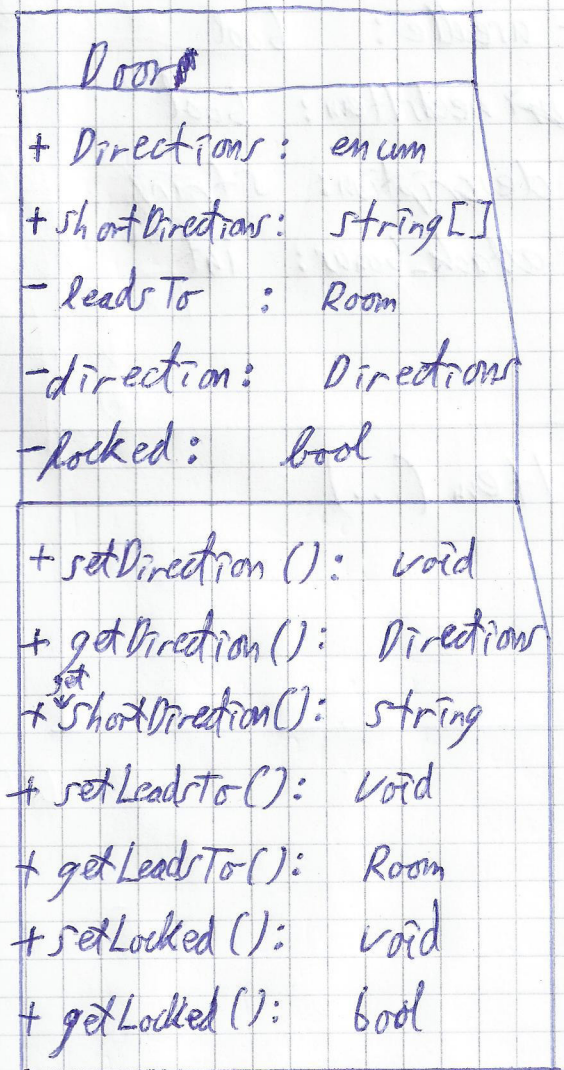 Door
+ Directions: enum
+ shortDirections: string[]
- leadsTo : Room
- direction: Directions
- locked: bool
+ setDirection(): void
+ getDirection(): Directions
+ getshortDirection(): string
+ setLeadsTo(): void
+ getLeadsTo(): Room
+ setLocked(): void
+ getLocked(): bool